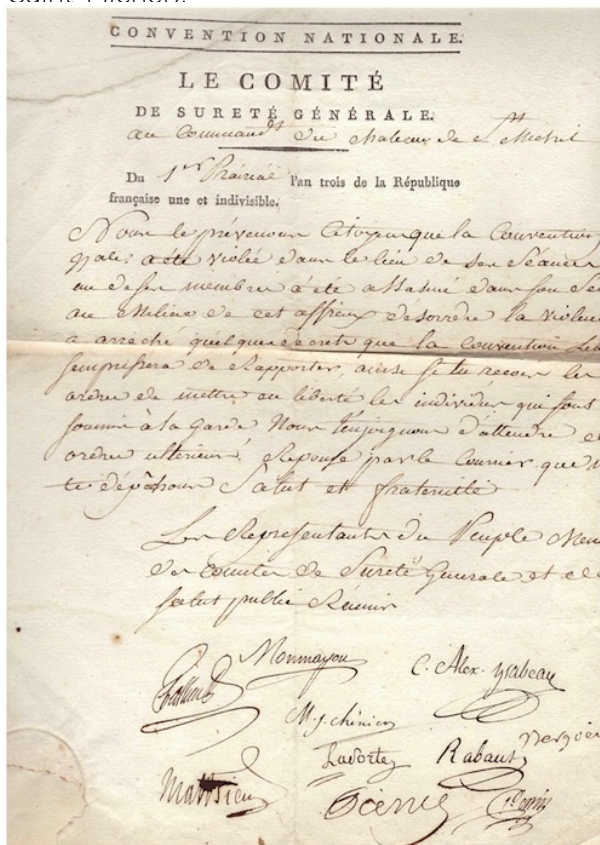 CONVENTION NATIONALE.
LE COMITÉ
DE SURETÉ GÉNÉRALE.
au Command.t du chateau de St Michel
Du 1er Prairial l'an trois de la République
française une et indivisible.
Nous te prévenons Citoyen que la Convention
a été violée dans le lieu de ses Séances
un de ses membres a été assassiné dans son
au milieu de cet affreux désordre la violen
a arraché quelques décrets que la convention
sempressera de Rapporter, ainsi si tu recois les
ordres de mettre en liberté les individus qui sont
soumis à ta garde Nous t'enjoignons d'attendre
ordres ultérieurs. Réponse par le Courrier que
te dépêchons Salut et fraternité
Les Représentants du Peuple Mem
des comités de Sureté Generale et de
salut public Réunis
Monmayou
C. Alex. Ysabeau
M. J. chénier
Laporte
Rabaut
Vernier
Mathieu
Pierret